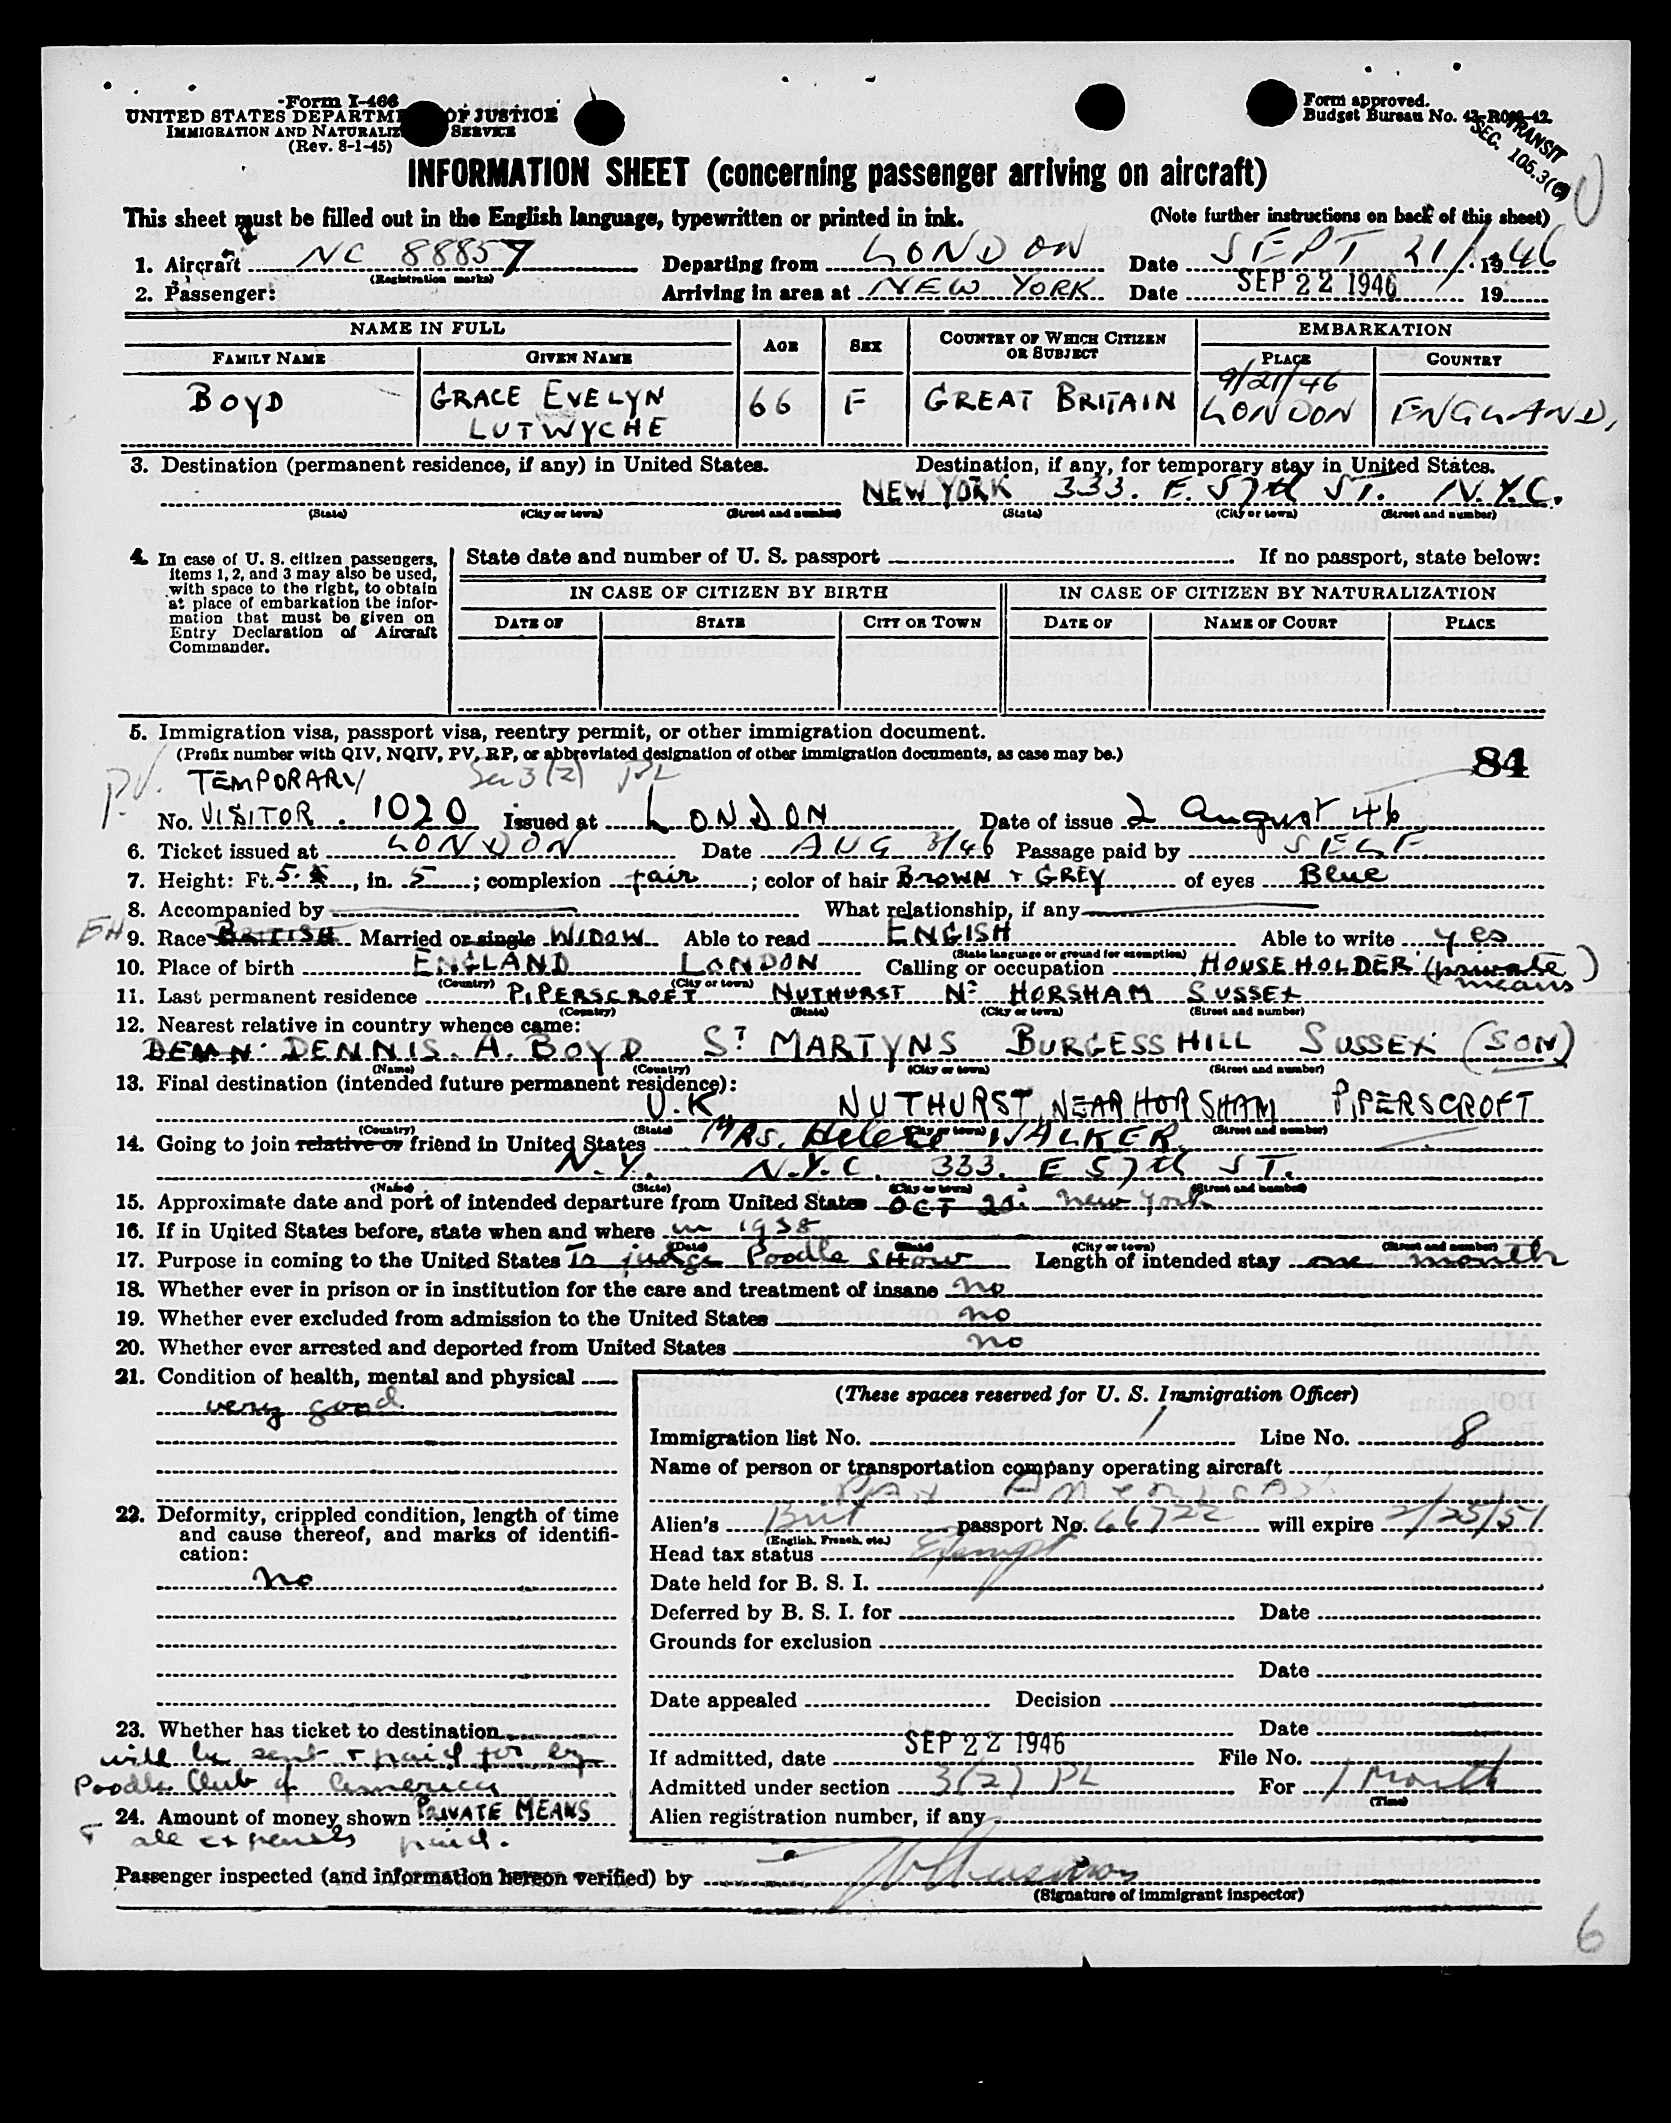 Form I-466
UNITED STATES DEPARTME OF JUSTICE
IMMIGRATION AND NATURALIZ SERVICE
(Rev. 8-1-45)
Form approved.
Budget Bureau No.
TRANSIT
SEC. 105.3(
INFORMATION SHEET (concerning passenger arriving on aircraft)
This sheet must be filled out in the English language, typewritten or printed in ink. (Note further instructions on back of this sheet)
1. Aircraft NC 88857 Departing from LONDON Date SEPT 21/ 1946
(Registration marks)
2. Passenger: Arriving in area at NEW YORK Date SEP 22 1946 19
NAME IN FULL AGE SEX COUNTRY OF WHICH CITIZEN OR SUBJECT EMBARKATION
FAMILY NAME GIVEN NAME PLACE COUNTRY
9/21/46
BOYD GRACE EVELYN 66 F GREAT BRITAIN LONDON ENGLAND,
LUTWYCHE
3. Destination (permanent residence, if any) in United States. Destination, if any, for temporary stay in United States.
NEW YORK 333. E. 57th ST. N.Y.C.
(State) (City or town) (Street and number) (State) (City or town) (Street and number)
4. In case of U. S. citizen passengers, items 1, 2, and 3 may also be used, with space to the right, to obtain at place of embarkation the information that must be given on Entry Declaration of Aircraft Commander.
State date and number of U. S. passport If no passport, state below:
IN CASE OF CITIZEN BY BIRTH IN CASE OF CITIZEN BY NATURALIZATION
DATE OF STATE CITY OR TOWN DATE OF NAME OF COURT PLACE
5. Immigration visa, passport visa, reentry permit, or other immigration document.
(Prefix number with QIV, NQIV, PV, RP, or abbreviated designation of other immigration documents, as case may be.) 84
PV. TEMPORARY Sec 3(2) PL
No. VISITOR. 1020 Issued at LONDON Date of issue 2 August 46
6. Ticket issued at LONDON Date AUG 3/46 Passage paid by SELF
7. Height: Ft. 5. , in. 5 ; complexion fair ; color of hair BROWN + GREY of eyes Blue
8. Accompanied by What relationship, if any
EH 9. Race BRITISH Married or single WIDOW Able to read ENGISH Able to write yes
(State language or ground for exemption)
10. Place of birth ENGLAND LONDON Calling or occupation HOUSEHOLDER (private means)
(Country) (City or town)
11. Last permanent residence PIPERSCROFT NUTHURST Nr HORSHAM SUSSEX
(Country) (State) (City or town) (Street and number)
12. Nearest relative in country whence came:
DENNIS. A. BOYD ST MARTYNS BURGESS HILL SUSSEX (SON)
(Name) (Country) (City or town) (Street and number)
13. Final destination (intended future permanent residence):
U.K. NUTHURST, NEAR HORSHAM PIPERSCROFT
(Country) (State) (City or town) (Street and number)
14. Going to join relative or friend in United States MRS. Helene WALKER
N.Y. N.Y.C. 333. E 57th ST.
(Name) (State) (City or town) (Street and number)
15. Approximate date and port of intended departure from United States OCT 20. New York
16. If in United States before, state when and where in 1938
(Date) (State) (City or town) (Street and number)
17. Purpose in coming to the United States To judge Poodle Show Length of intended stay one month
18. Whether ever in prison or in institution for the care and treatment of insane no
19. Whether ever excluded from admission to the United States no
20. Whether ever arrested and deported from United States no
21. Condition of health, mental and physical
very good
22. Deformity, crippled condition, length of time and cause thereof, and marks of identification:
no
23. Whether has ticket to destination
will be sent + paid for by
Poodle Club of America
24. Amount of money shown PRIVATE MEANS
+ all expenses paid.
(These spaces reserved for U. S. Immigration Officer)
Immigration list No. 1 Line No. 8
Name of person or transportation company operating aircraft
Pan American
Alien's Brit passport No. 66722 will expire 2/25/51
(English, French, etc.)
Head tax status Exempt
Date held for B. S. I.
Deferred by B. S. I. for Date
Grounds for exclusion
Date
Date appealed Decision
Date
If admitted, date SEP 22 1946 File No.
Admitted under section 3(2) PL For 1 Month
(Time)
Alien registration number, if any
Passenger inspected (and information hereon verified) by
(Signature of immigrant inspector)
6